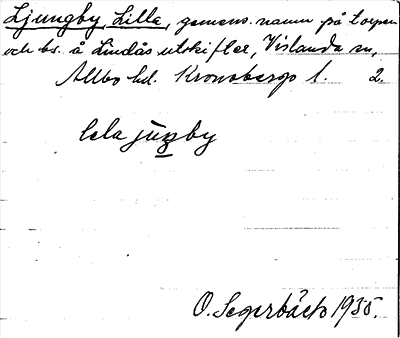 Ljungby, Lilla, gemens. namn på torpen
och bs. å Lindås utskifter, Vislanda sn,
Allbo hd. Kronobergs l. 2.
lela juŋby
O. Segerbäck 1935.